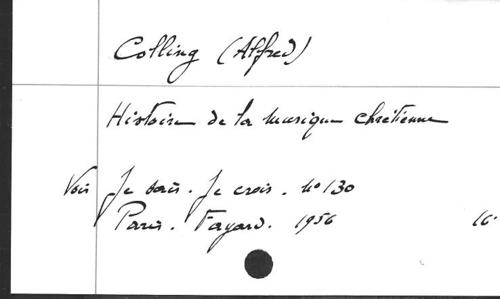 Colling (Alfred)
Histoire de la musique chrétienne
Voir Je sais. Je crois. no 130
Paris. Fayard. 1956 16.